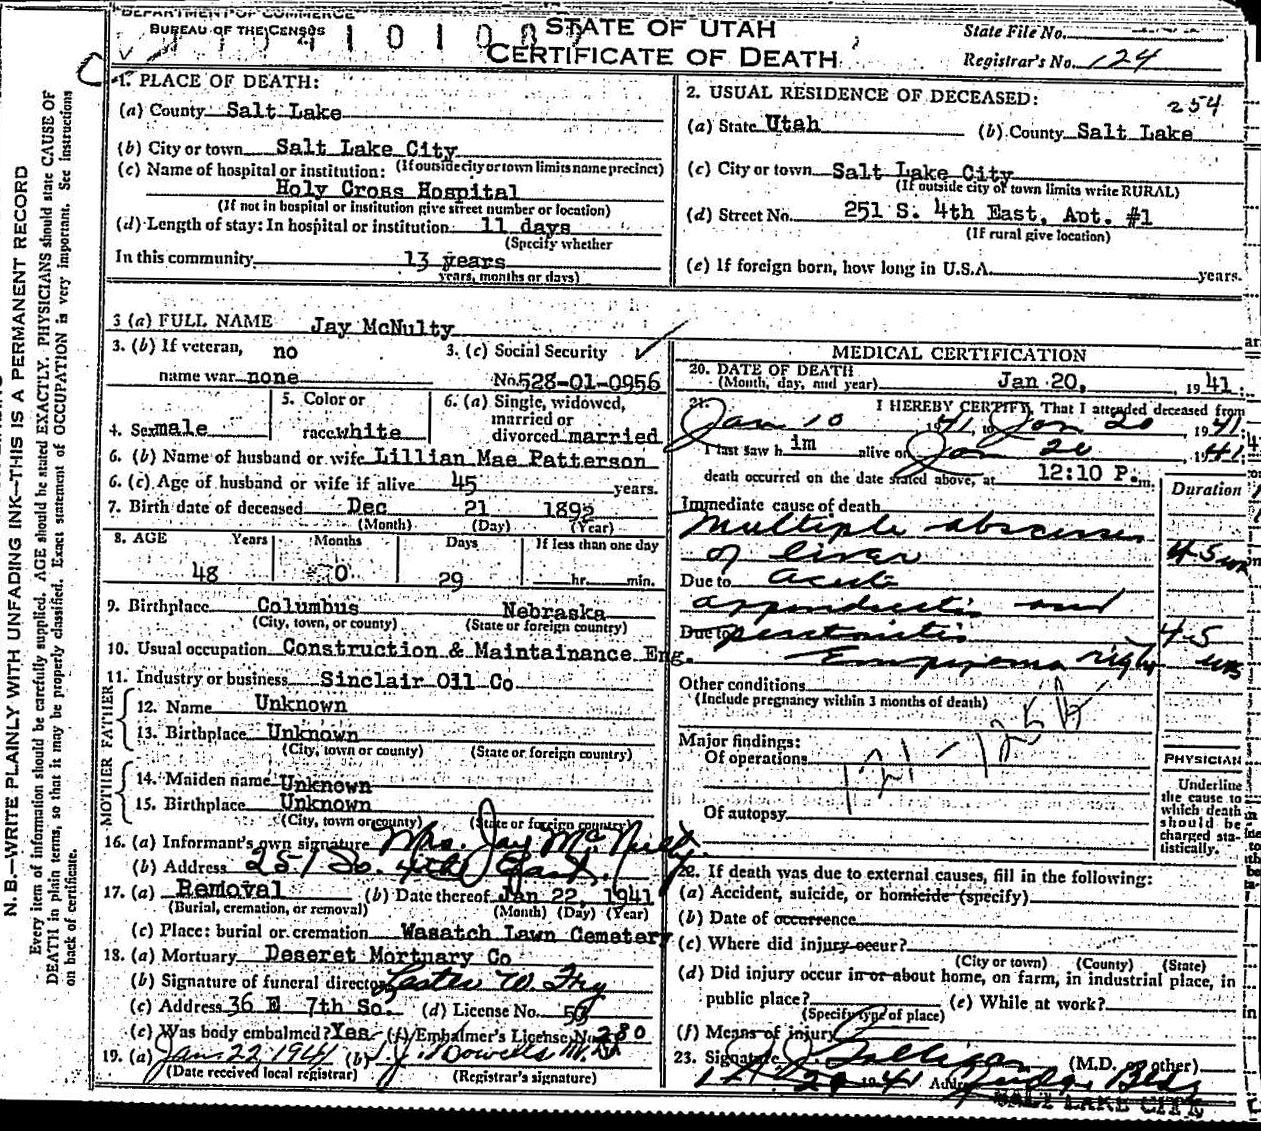 DEPARTMENT OF COMMERCE
BUREAU OF THE CENSUS
STATE OF UTAH
CERTIFICATE OF DEATH
State File No.
Registrar's No. 124
N. B.—WRITE PLAINLY WITH UNFADING INK—THIS IS A PERMANENT RECORD
Every item of information should be carefully supplied. AGE should be stated EXACTLY. PHYSICIANS should state CAUSE OF
DEATH in plain terms, so that it may be properly classified. Exact statement of OCCUPATION is very important. See instructions
on back of certificate.
1. PLACE OF DEATH:
(a) County Salt Lake
(b) City or town Salt Lake City
(If outside city or town limits name precinct)
(c) Name of hospital or institution:
Holy Cross Hospital
(If not in hospital or institution give street number or location)
(d) Length of stay: In hospital or institution 11 days
(Specify whether
In this community 13 years
years, months or days)
2. USUAL RESIDENCE OF DECEASED:
254
(a) State Utah (b) County Salt Lake
(c) City or town Salt Lake City
(If outside city or town limits write RURAL)
(d) Street No. 251 S. 4th East, Apt. #1
(If rural give location)
(e) If foreign born, how long in U.S.A. years.
3 (a) FULL NAME Jay McNulty
3. (b) If veteran, no
name war none
3. (c) Social Security
No. 528-01-0956
4. Sex male
5. Color or
race white
6. (a) Single, widowed,
married or
divorced married
6. (b) Name of husband or wife Lillian Mae Patterson
6. (c) Age of husband or wife if alive 45 years.
7. Birth date of deceased Dec 21 1892
(Month) (Day) (Year)
8. AGE Years Months Days If less than one day
48 0 29 hr. min.
9. Birthplace Columbus Nebraska
(City, town, or county) (State or foreign country)
10. Usual occupation Construction & Maintainance Eng.
11. Industry or business Sinclair Oil Co
FATHER
12. Name Unknown
13. Birthplace Unknown
(City, town or county) (State or foreign country)
MOTHER
14. Maiden name Unknown
15. Birthplace Unknown
(City, town or county) (State or foreign country)
16. (a) Informant's own signature Mrs. Jay McNulty
(b) Address 251 So. 4th East.
17. (a) Removal (b) Date thereof Jan 22, 1941
(Burial, cremation, or removal) (Month) (Day) (Year)
(c) Place: burial or cremation Wasatch Lawn Cemetery
18. (a) Mortuary Deseret Mortuary Co
(b) Signature of funeral director Lester W. Fry
(c) Address 36 E 7th So. (d) License No.
(e) Was body embalmed? Yes (f) Embalmer's License No. 280
19. (a) Jan. 22 1941 (b)
(Date received local registrar) (Registrar's signature)
MEDICAL CERTIFICATION
20. DATE OF DEATH
(Month, day, and year) Jan 20, 1941
21. I HEREBY CERTIFY, That I attended deceased from
Jan 10 1941, to Jan 20 1941
I last saw him alive on Jan 20 1941
death occurred on the date stated above, at 12:10 P. m.
Duration
Immediate cause of death
Multiple abscesses
of liver 4-5 wk
Due to acute
appendicitis and
Due to peritonitis 4-5
Empyema right wks
Other conditions
(Include pregnancy within 3 months of death)
Major findings:
Of operations
121 - 125 b
Of autopsy
PHYSICIAN
Underline
the cause to
which death
should be
charged sta-
tistically.
22. If death was due to external causes, fill in the following:
(a) Accident, suicide, or homicide (specify)
(b) Date of occurrence
(c) Where did injury occur?
(City or town) (County) (State)
(d) Did injury occur in or about home, on farm, in industrial place, in
public place? (e) While at work?
(Specify type of place)
(f) Means of injury
23. Signature (M.D. or other)
1941 Address Judge Bldg
SALT LAKE CITY